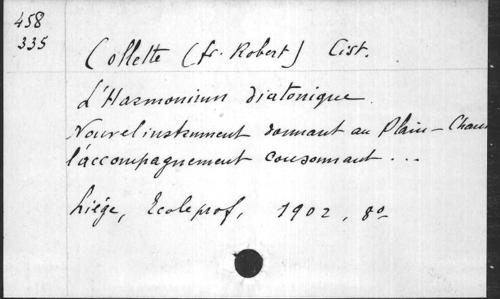 458
335
Collette (fr. Robert) Cist.
L'Harmonium diatonique.
Nouvel instrument donnant au Plain-Chant
l'accompagnement consonnant ...
Liége, Ecole prof, 1902, 8o